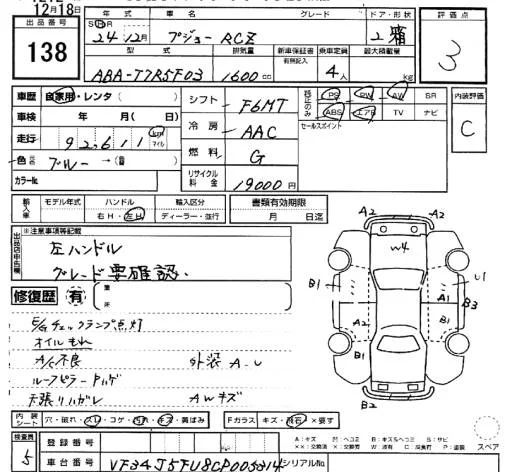 12月18日
出品番号
138
年式 車名 グレード ドア・形状
24年12月 プジョー RCZ 2 箱
型式 排気量 新車保証書 乗車定員 最大積載量
有無記入
ABA-T7R5F03 1600cc 4人 kg
評価点
3
車歴 自家用・レンタ( )
車検 年 月( 日)
走行 92,611 km マイル
色 ブルー → (替)
カラーNo.
シフト F6MT
冷房 AAC
燃料 G
リサイクル料金 19000円
PS PW AW SR
ABS エアB TV ナビ
セールスポイント
内装評価
C
輸入車 モデル年式 ハンドル 輸入区分
右H・左H ディーラー・並行
書類有効期限
月 日迄
出品店申告欄
※注意事項等記載
左ハンドル
グレード要確認、
修復歴 有
箇所
E/Gチェックランプ点灯
オイルもれ
A/C不良 外装 A.U
ルーフピラーハゲ
天張りハガレ AWキズ
A2 A2
W4
B1 U1
A1 B3
A2 B1
B1 B1
B2
内装シート 穴・破れ・ヘリ・コゲ・汚れ・キズ・黄ばみ
Fガラス キズ・飛石・×要す
検査員
5
登録番号
車台番号 VF34J5FU8CP005314
シリアルNo.
A:キズ
スペア